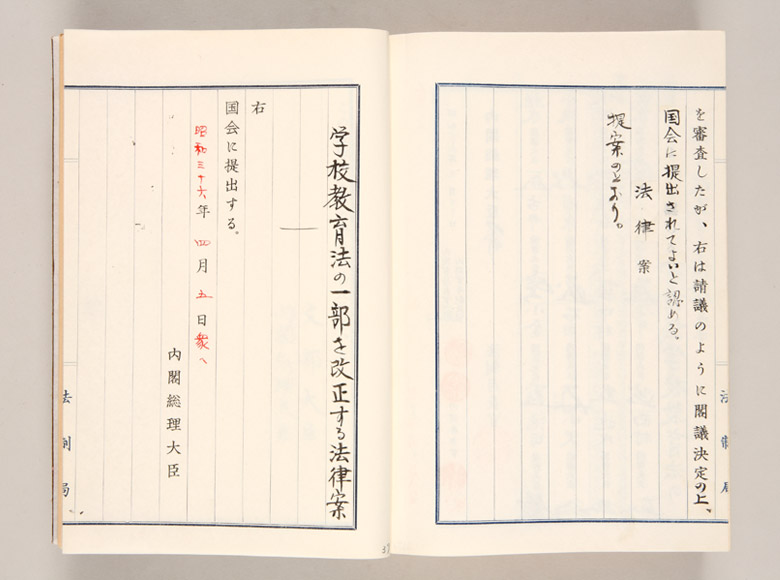 を審査したが、右は請議のように閣議決定の上、
国会に提出されてよいと認める。
法律案
提案のとおり。
法制局
学校教育法の一部を改正する法律案
右
国会に提出する。
昭和三十六年四月五日衆へ
内閣総理大臣
法制局